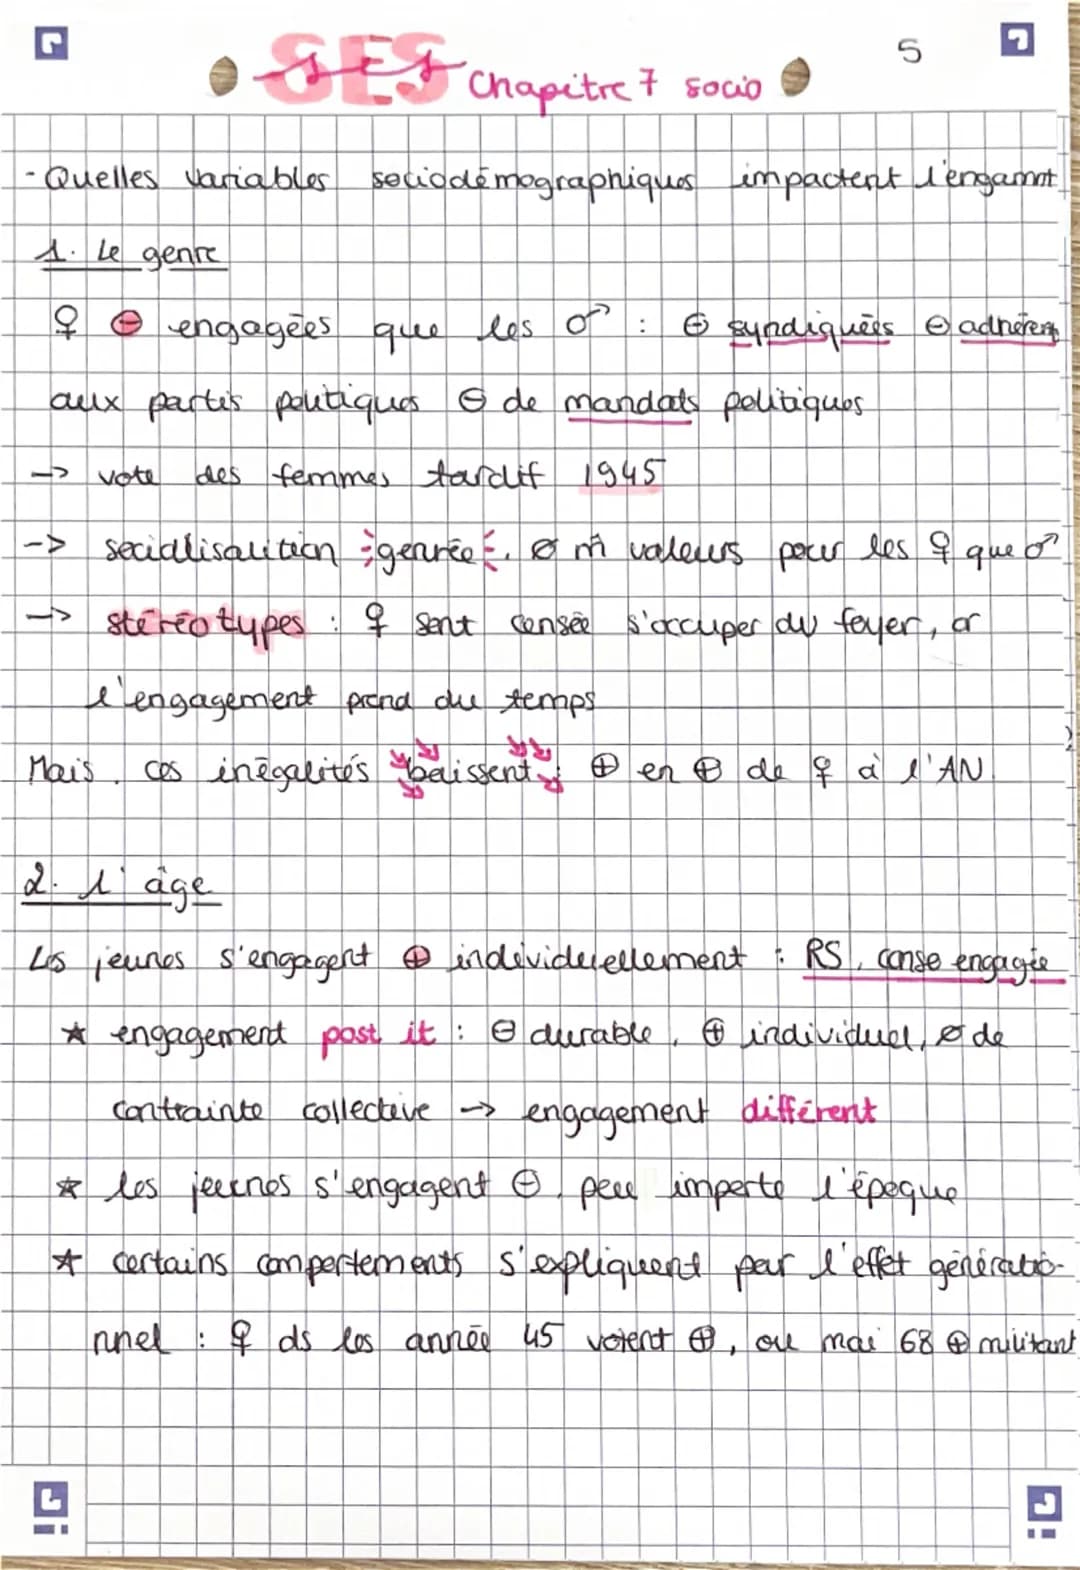 5
SES
ses Chapitre 7 socio
- Quelles variables sociodémographiques impactent l'engamnt
1. Le genre
♀ ⊖ engagées que les ♂ : ⊖ syndiquées ⊖ adhèrent
aux partis politiques ⊖ de mandats politiques
-> vote des femmes tardif 1945
-> socialisation genrée. ø m̂ valeurs pour les ♀ que ♂
-> stéréotypes : ♀ sont censée s'occuper du foyer, or
l'engagement prend du temps
Mais. ces inégalités baissent : ⊕ en ⊕ de ♀ à l'AN
2. l'âge
Les jeunes s'engagent ⊕ individuellement : RS, conso engagée
☆ engagement post it : ⊖ durable, ⊕ individuel, ø de
contrainte collective -> engagement différent
☆ les jeunes s'engagent ⊖, peu importe l'époque
☆ certains comportements s'expliquent par l'effet génératio-
nnel : ♀ ds les année 45 votent ⊕, ou mai 68 ⊕ militant